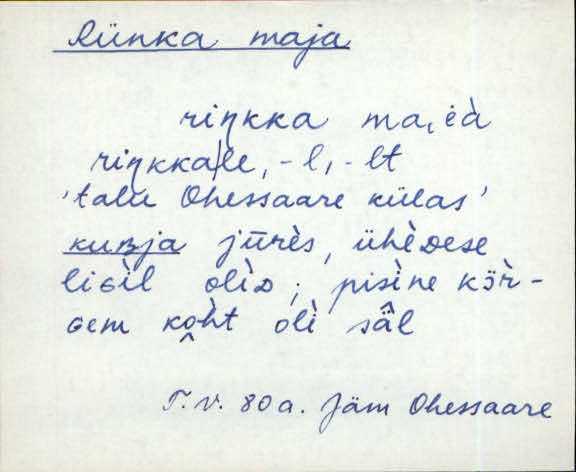 Riinka maja
riŋkka ma, i̮à
riŋkka|le, -l, -lt
'talu Ohessaare külas'
kuʙja jūrès, ühèᴅese
liɢìl olìᴅ; pisìne kɔ̈̀r-
ɢem kò̭ht olì sâ̈l
T.V. 80a. Jäm Ohessaare